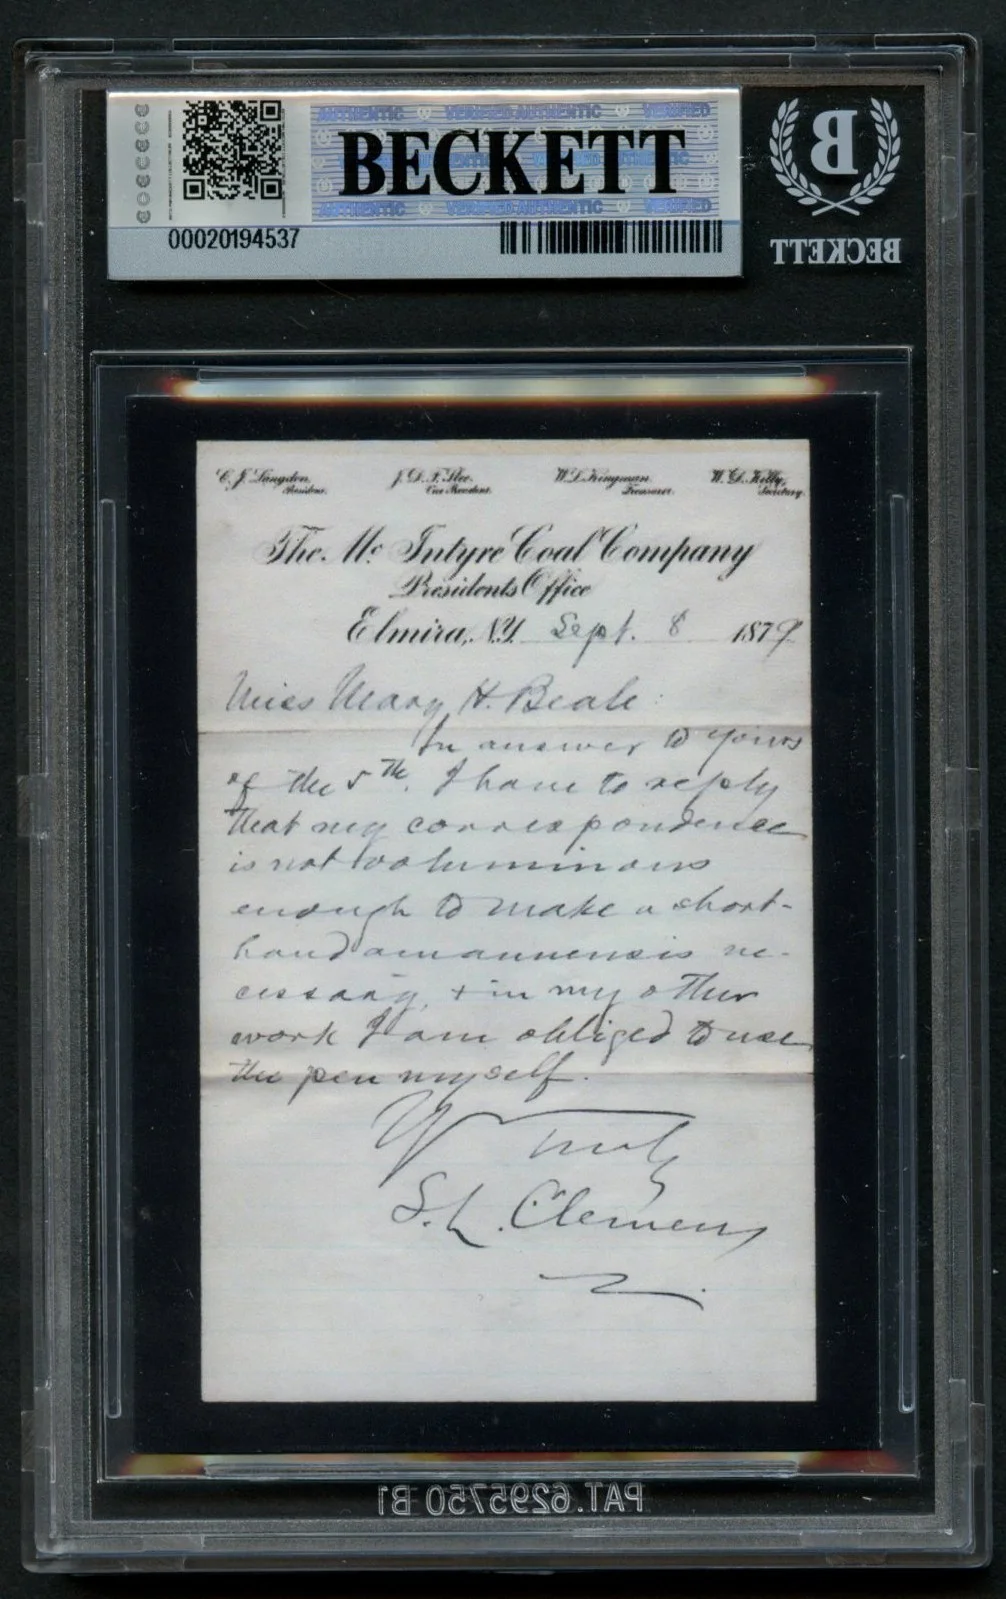 AUTHENTIC VERIFIED AUTHENTIC VERIFIED
BECKETT
AUTHENTIC VERIFIED AUTHENTIC VERIFIED
00020194537
B
BECKETT
C. J. Langdon, J. D. F. Slee. W. L. Kingman W. D. Kelly,
President. Vice President. Treasurer. Secretary.
The Mc Intyre Coal Company
Presidents Office
Elmira, N.Y. Sept. 8 1879
Miss Mary H. Beale:
In answer to yours
of the 5th, I have to reply
that my correspondence
is not voluminous
enough to make a short-
hand amanuensis ne-
cessary, + in my other
work I am obliged to use
the pen myself.
Yr Truly
S. L. Clemens
PAT.6295750 B1